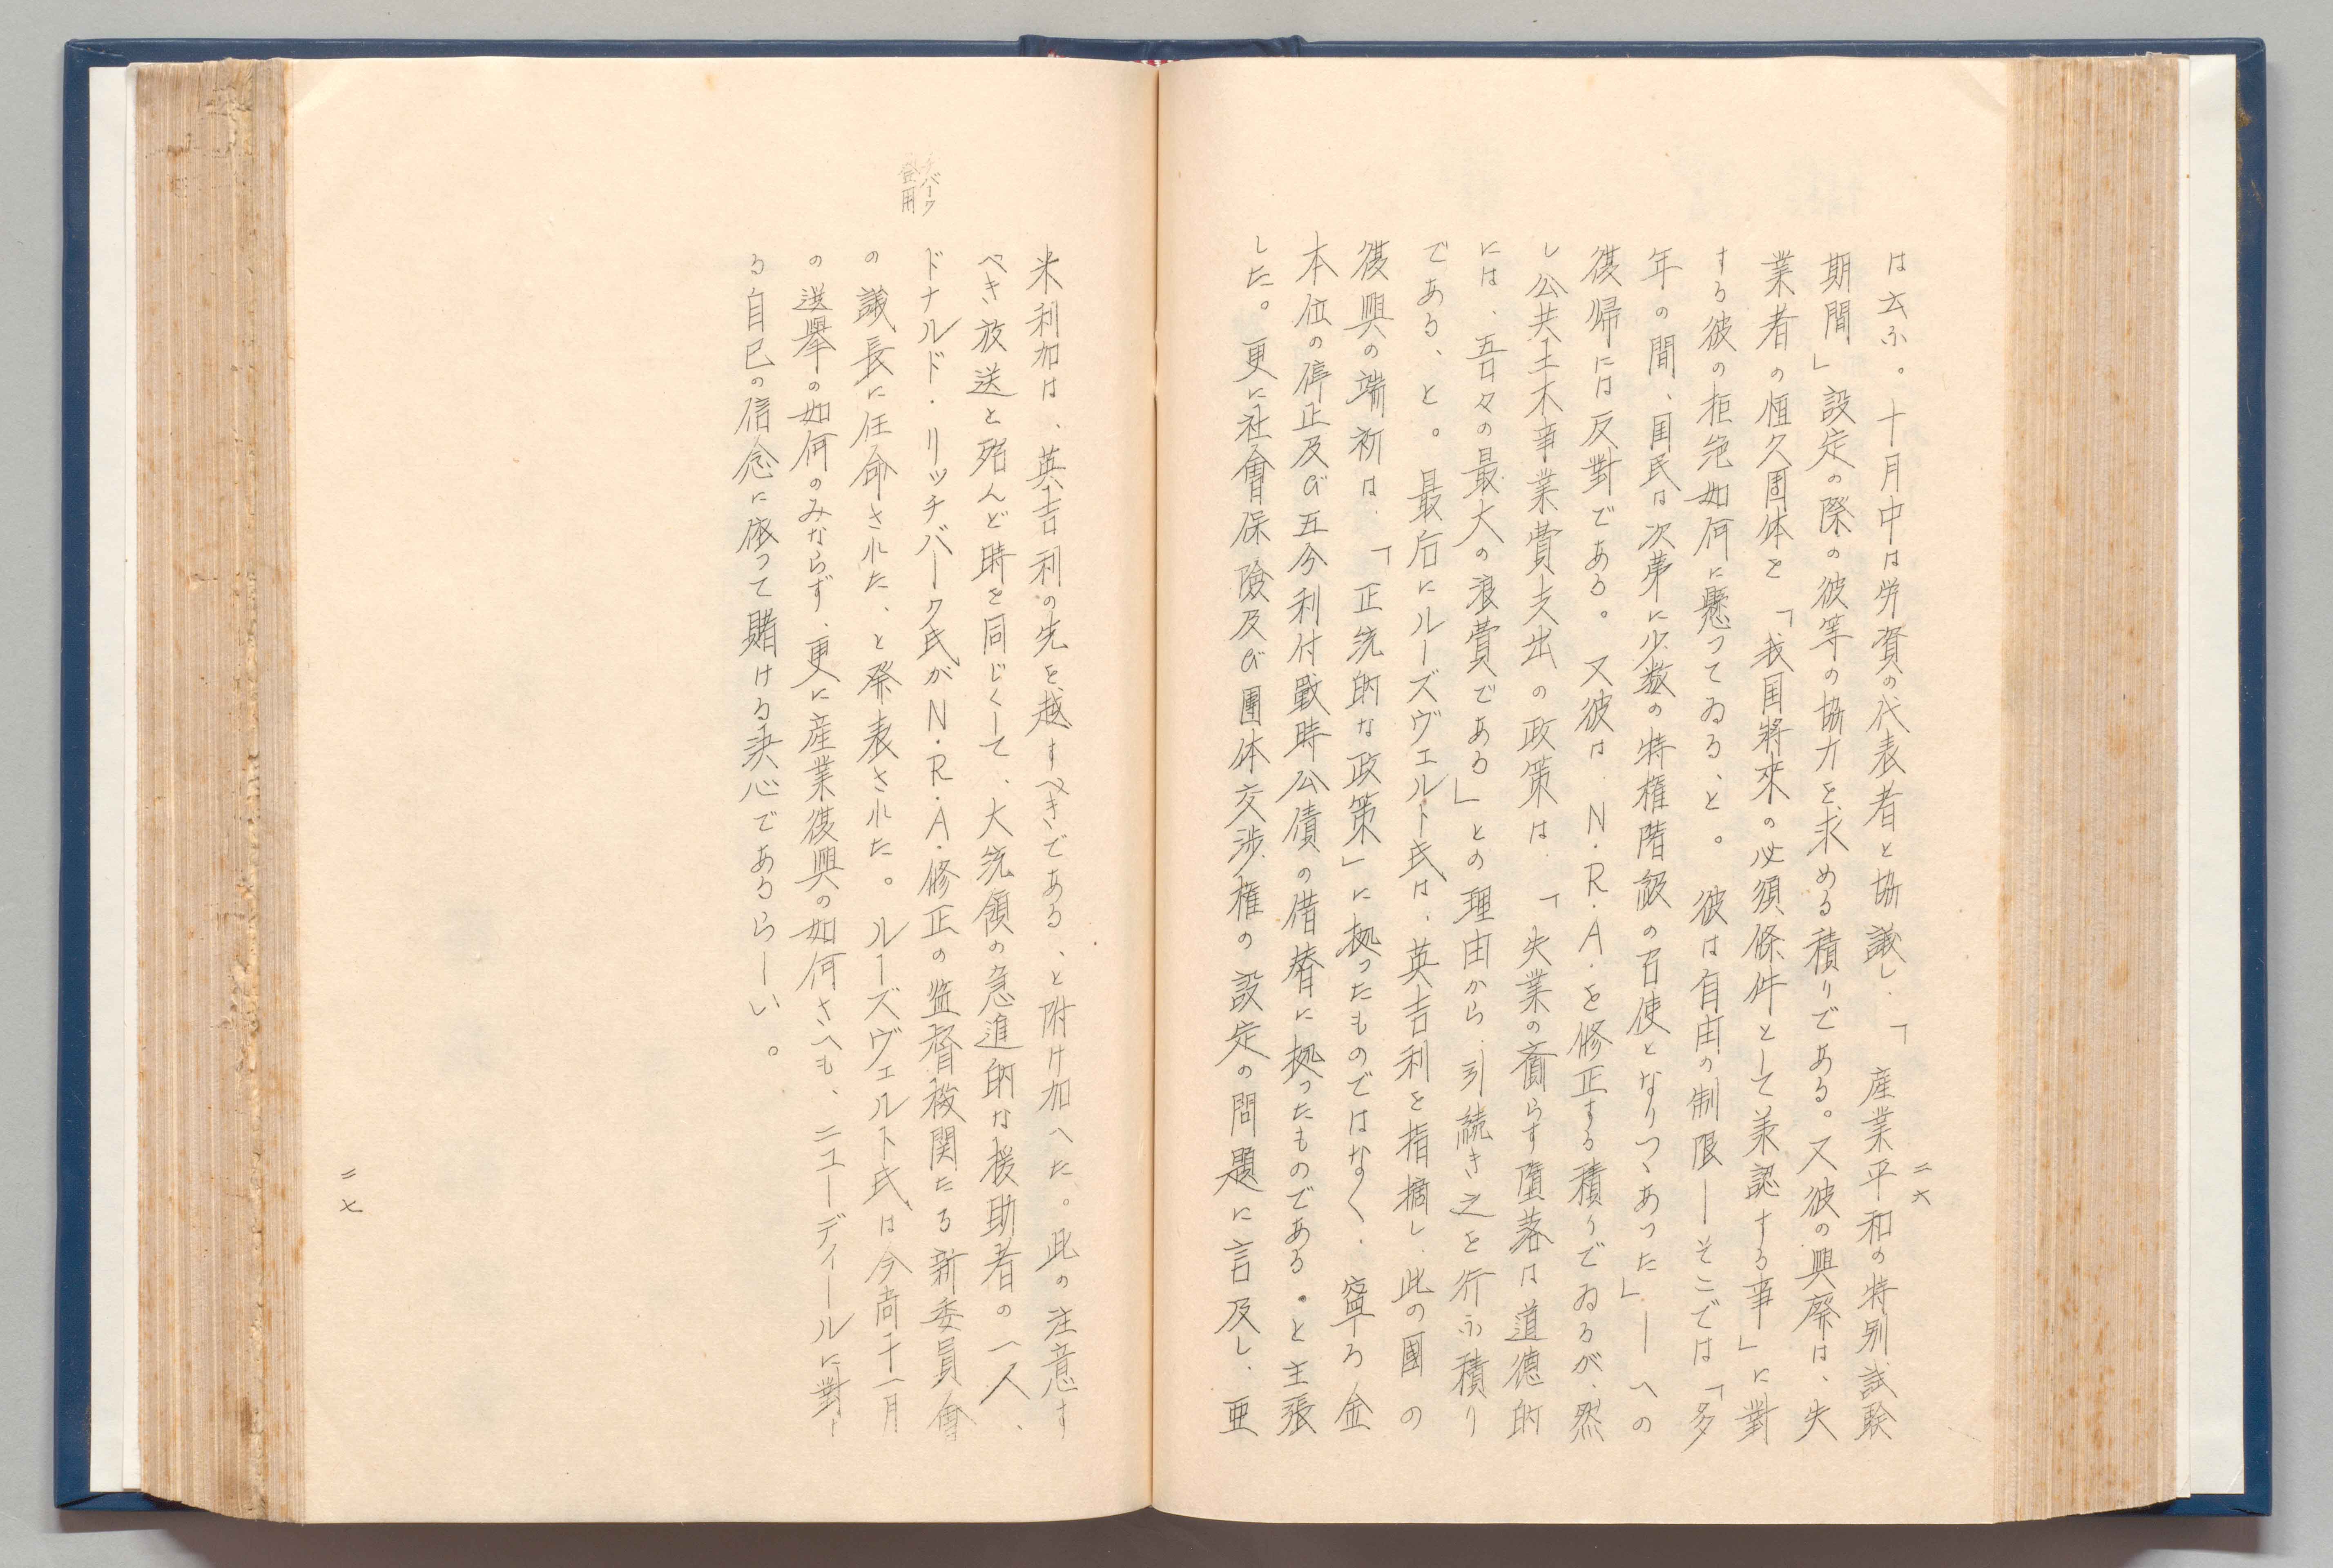 二六
は云ふ。十月中は労資の代表者と協議し、「産業平和の特別試験
期間」設定の際の彼等の協力を求める積りである。又彼の興廃は、失
業者の恒久団体を「我国将来の必須條件として兼認する事」に對
する彼の拒絶如何に懸つてゐる、と。彼は自由の制限―そこでは「多
年の間、国民は次第に少数の特権階級の召使となりつゝあつた」―への
復帰には反對である。又彼は、N・R・A・を修正する積りでゐるが、然
し公共土木事業費支出の政策は、「失業の齎らす墮落は道德的
には、吾々の最大の浪費である」との理由から、引続き之を行ふ積り
である、と。最后にルーズヴェルト氏は、英吉利を指摘し、此の國の
復興の端初は、「正統的な政策」に拠つたものではなく、寧ろ金
本位の停止及び五分利付戰時公債の借替に拠つたものである。と主張
した。更に社會保險及び團体交渉権の設定の問題に言及し、亜
米利加は、英吉利の先を越すべきである、と附け加へた。此の注意す
べき放送と殆んど時を同じくして、大統領の急進的な援助者の一人、
チバーク
登用
ドナルド・リッチバーク氏がN・R・A・修正の監督機関たる新委員會
の議長に任命された、と発表された。ルーズヴェルト氏は今尚十一月
の選擧の如何のみならず、更に産業復興の如何さへも、ニューディールに對す
る自己の信念に依つて賭ける決心であるらしい。
二七